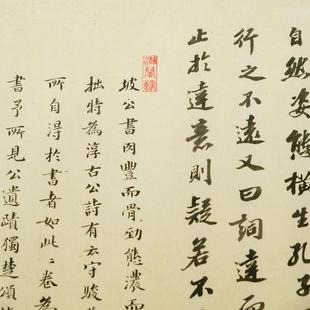 自然姿態橫生孔子
行之不遠又曰詞達而
止於達意則疑若不
坡公書肉豐而骨勁態濃而
拙特為淳古公詩有云守駿
所自得於書者如此二卷為
書予所見公遺蹟獨楚頌